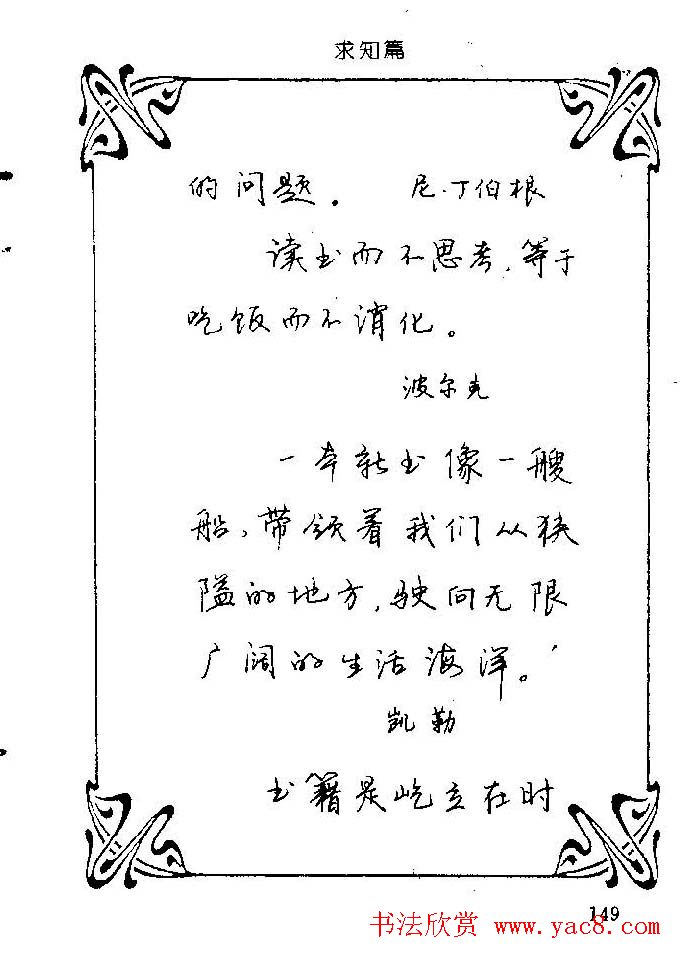 求知篇
的问题. 尼·丁伯根
读书而不思考,等于
吃饭而不消化。
波尔克
一本新书像一艘
船,带领着我们从狭
隘的地方,驶向无限
广阔的生活海洋。
凯勒
书籍是屹立在时
149
书法欣赏 www.yac8.com